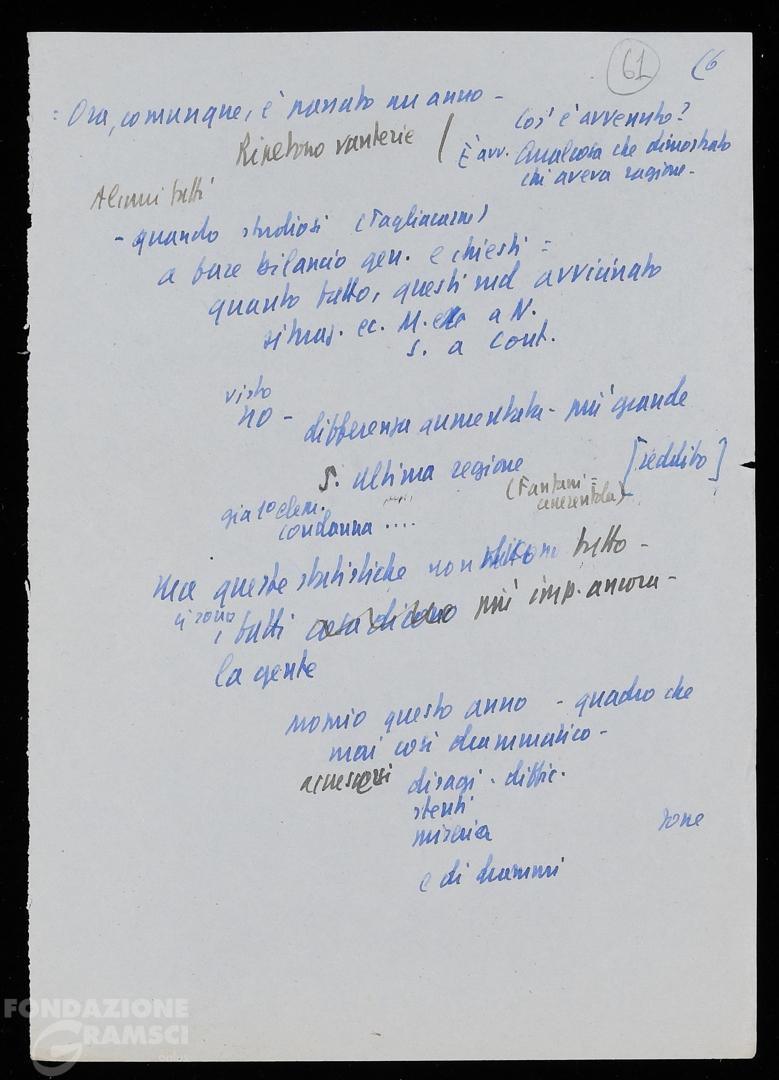 61 (6
: Ora, comunque, è passato un anno -
Ripetono vanterie
Cos'è avvenuto?
È avv. Qualcosa che dimostrato
chi aveva ragione -
Alcuni fatti
- quando studiosi (Tagliacarne)
a fare bilancio gen. e chiesti =
quanto fatto, questi sud avvicinato
situaz. ec. M. a N.
S. a Cont.
visto
NO - differenza aumentata - più grande
S. ultima regione [reddito]
(Fanfani =
cenerentola)
già 10 clem.
condanna ....
Ma queste statistiche non dicono tutto -
ci sono, fatti cosa dicono più imp. ancora -
la gente
proprio questo anno - quadro che
mai così drammatico -
accresciersi disagi - diffic.
stenti
miseria zone
e di drammi
FONDAZIONE
GRAMSCI
onlus